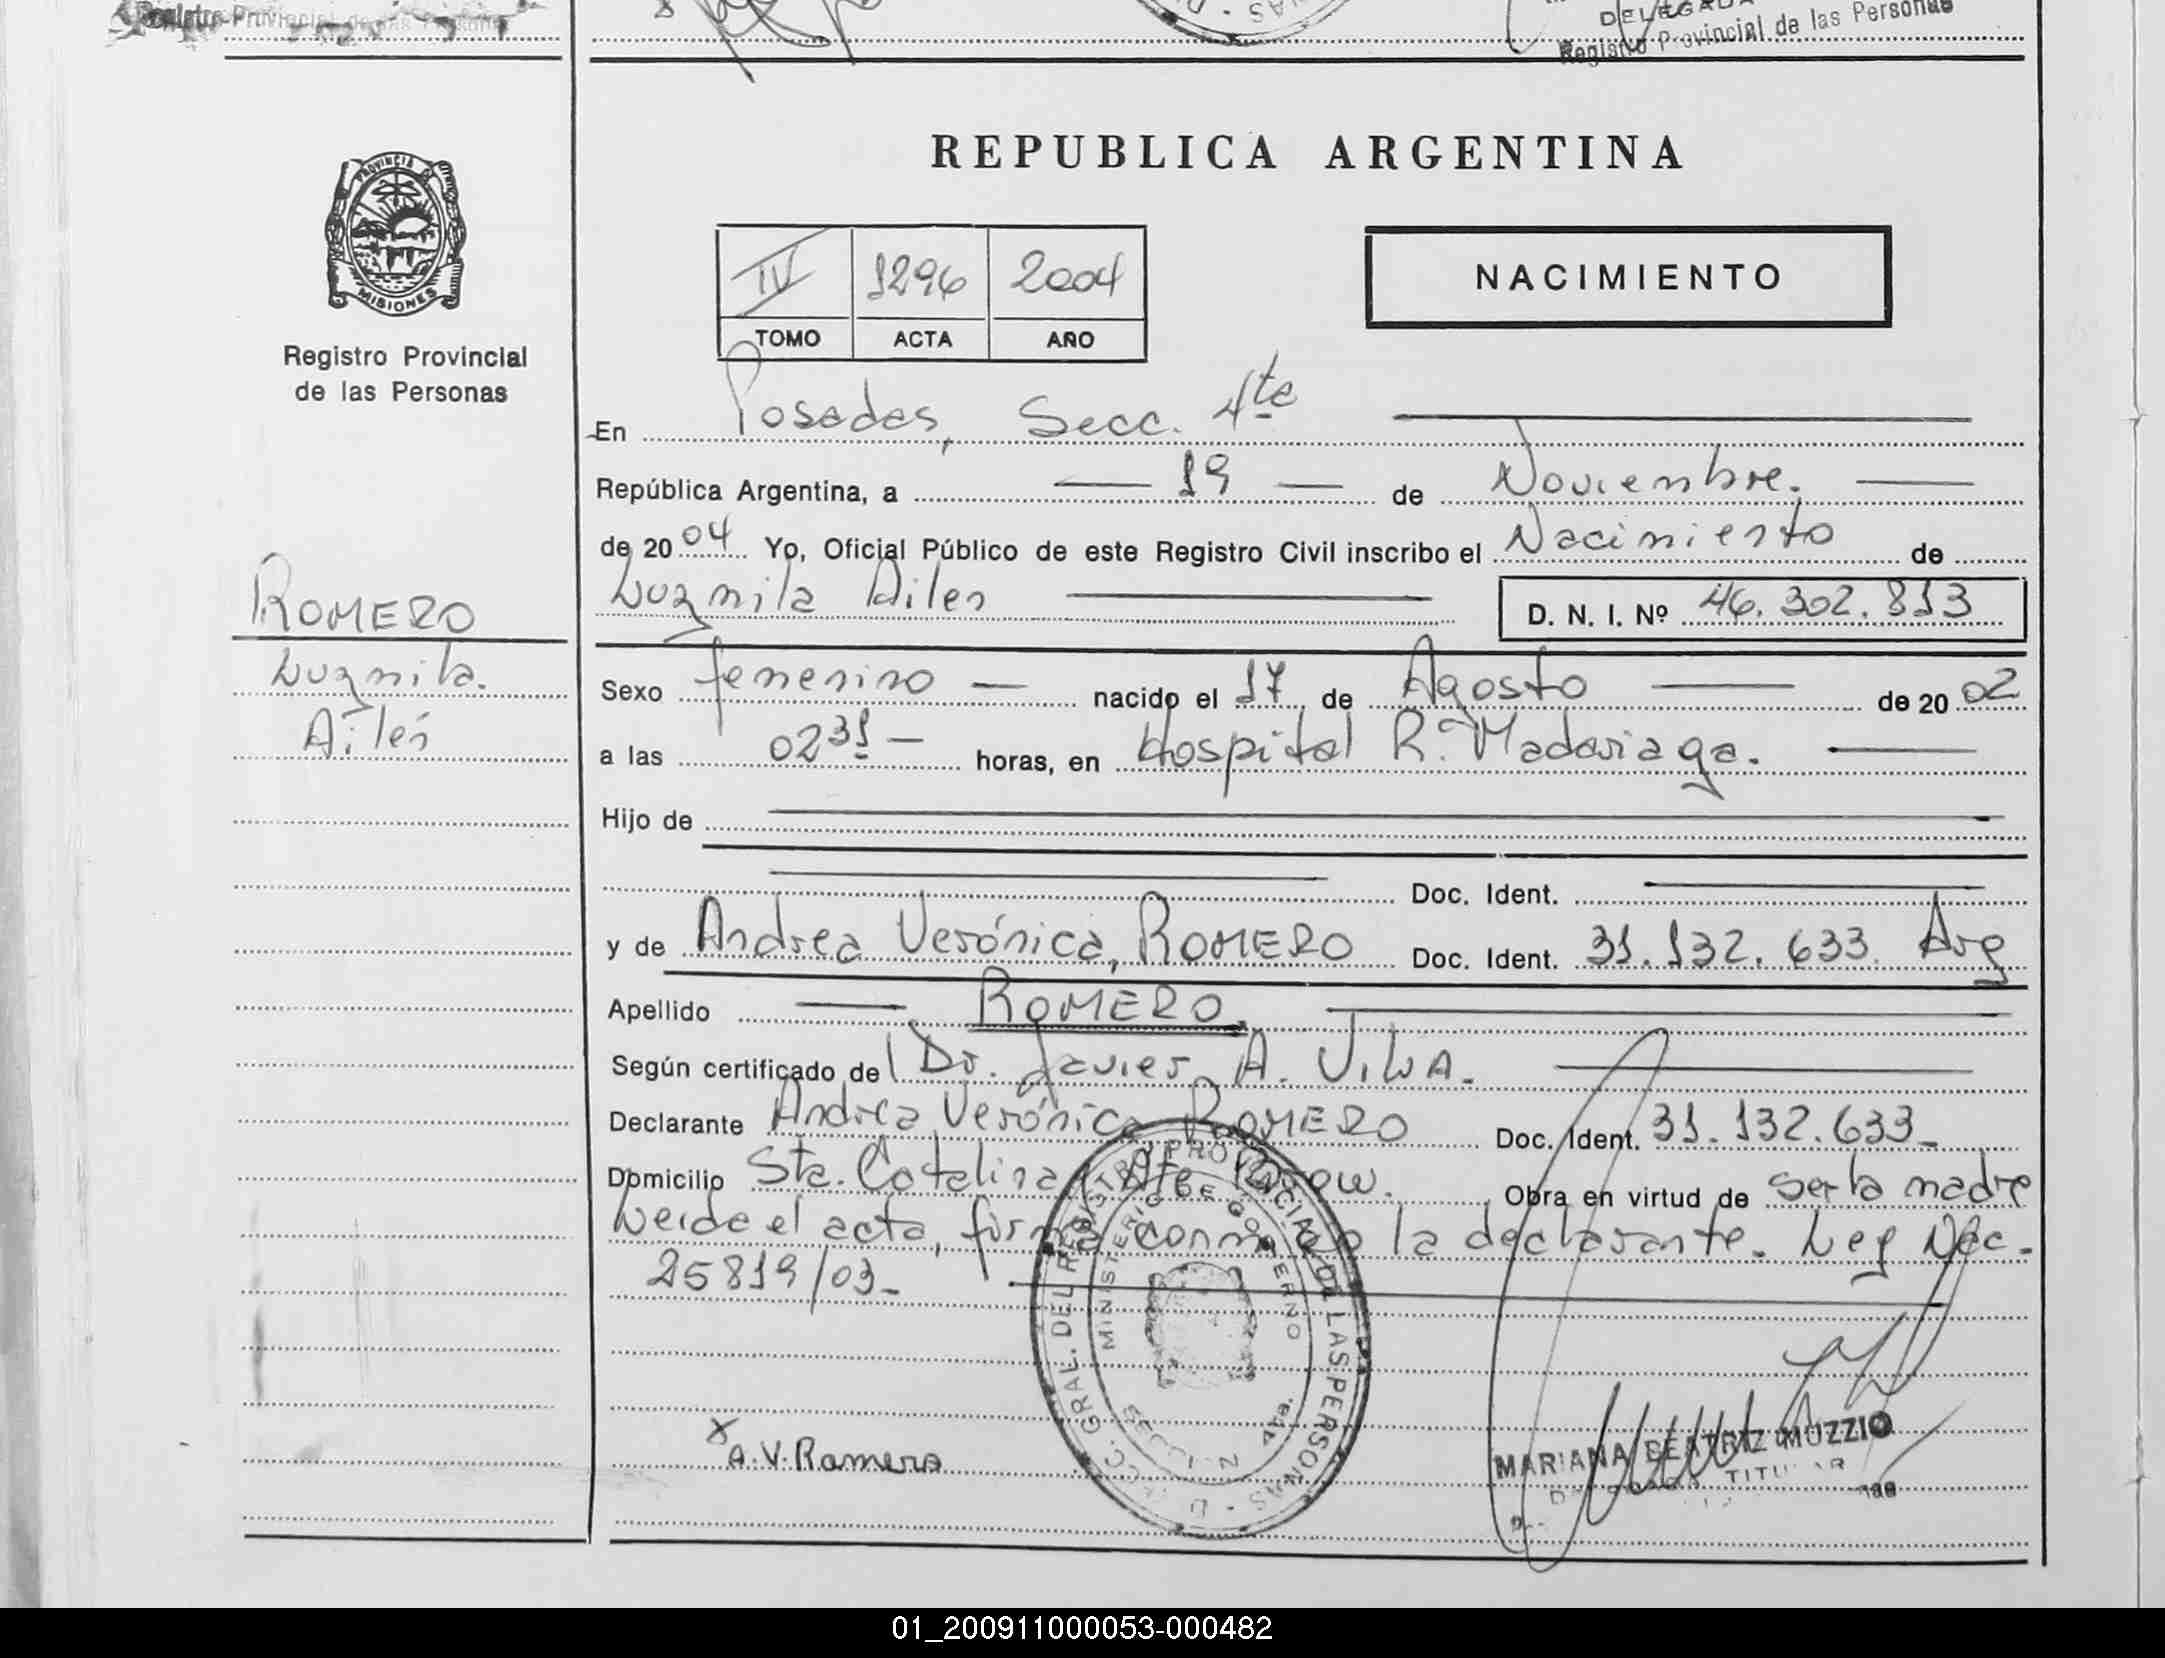 DELEGADA
Registro Provincial de las Personas
REPUBLICA ARGENTINA
PROVINCIA DE
MISIONES
Registro Provincial
de las Personas
IV 1296 2004
TOMO ACTA AÑO
NACIMIENTO
En Posadas, Secc. 4ta
República Argentina, a 19 de Noviembre.
de 2004 Yo, Oficial Público de este Registro Civil inscribo el Nacimiento de
Luzmila Ailen D. N. I. Nº 46.302.813
ROMERO
Luzmila.
Ailén
Sexo femenino nacido el 17 de Agosto de 2002
a las 02 31 horas, en Hospital R. Madariaga.
Hijo de
Doc. Ident.
y de Andrea Verónica, ROMERO Doc. Ident. 31.132.633. Arg
Apellido ROMERO
Según certificado de Dr. Javier A. Vilva.
Declarante Andrea Verónica ROMERO Doc. Ident. 31.132.633
Domicilio Sta. Catalina y Ate Brow. Obra en virtud de ser la madre
Leida el acta, firma conmigo la declarante. Leg Nac.
25819/03
DIRECC. GRAL. DEL REGISTRO PROVINCIAL DE LAS PERSONAS
MINISTERIO DE GOBIERNO
4ta.
x
A.V. Ramero
MARIANA BEATRIZ MUZZIO
TITULAR
01_200911000053-000482